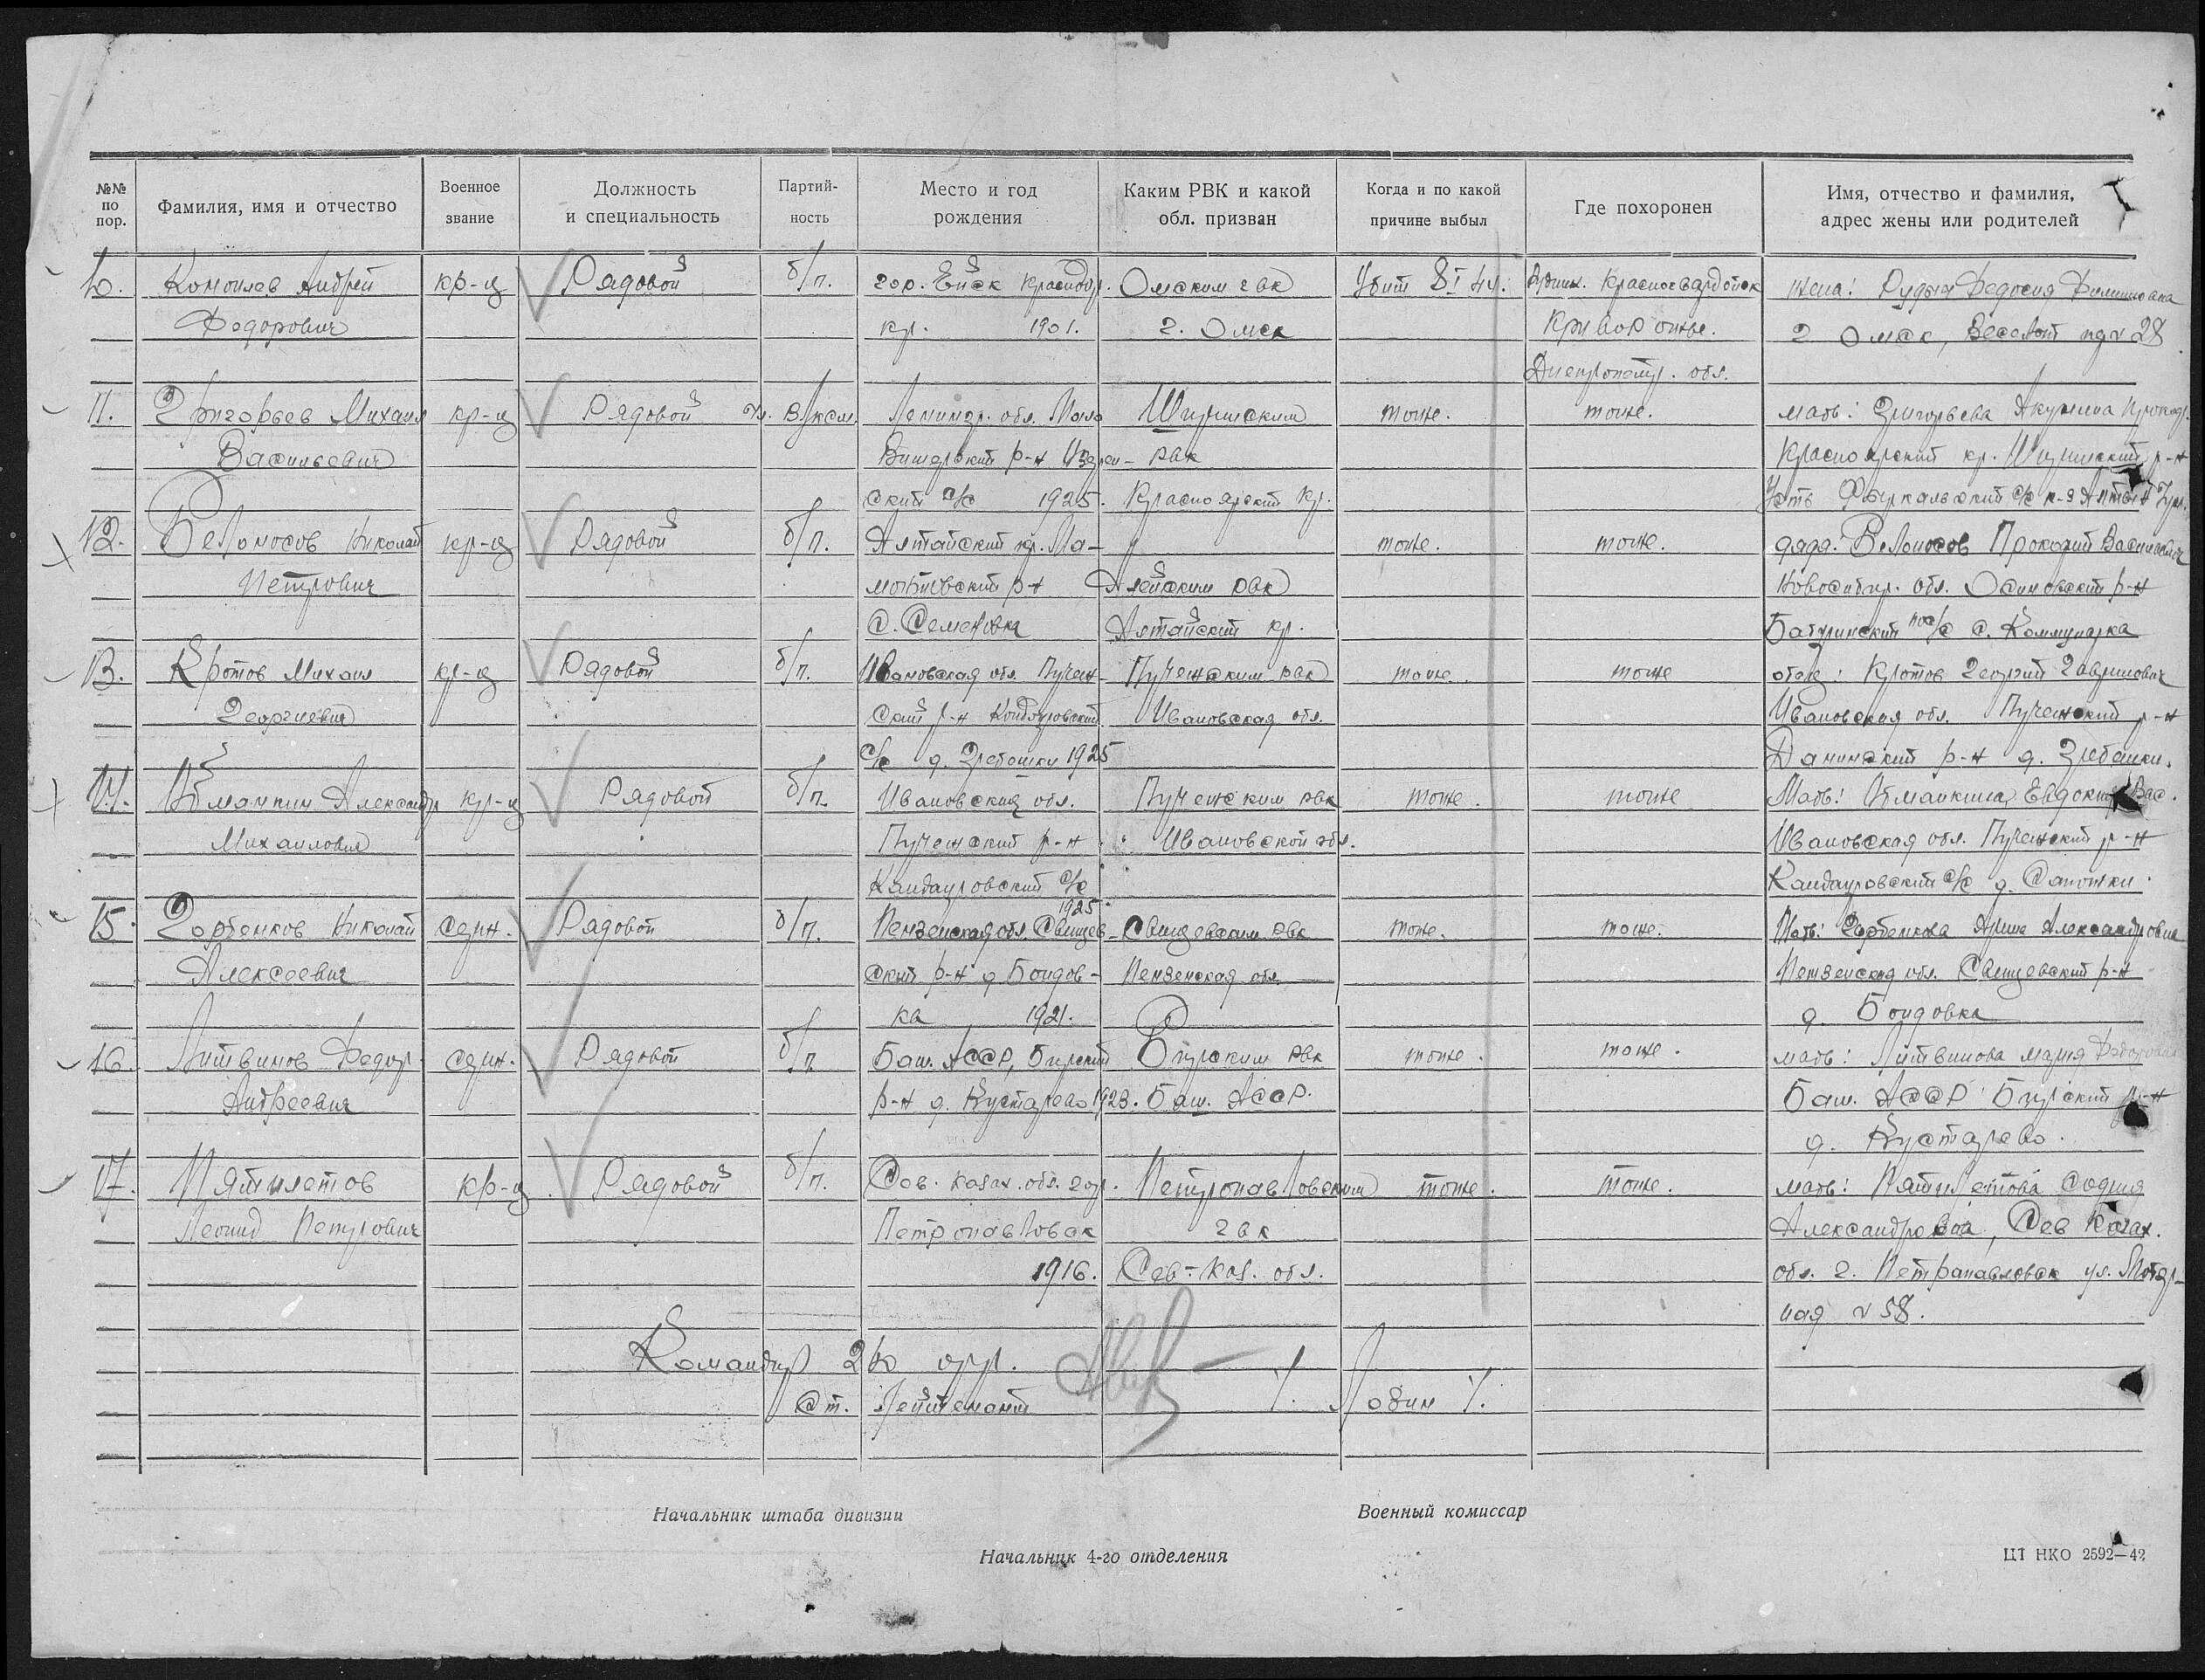 №№ по пор.
Фамилия, имя и отчество
Военное звание
Должность и специальность
Партий- ность
Место и год рождения
Каким РВК и какой обл. призван
Когда и по какой причине выбыл
Где похоронен
Имя, отчество и фамилия, адрес жены или родителей
10. Андрей кр-ц Рядовой б/п. гор. Ейск Краснодар. Омским гвк Убит 8 I 44. Рудник Красногвардейск жена: Рудых Федосия
Федорович кр. 1901. г. Омск Криворожье. г. Омск, 28
Днепропетр. обл.
11. Григорьев Михаил кр-ц Рядовой чл. Влксм. Ленингр. обл. Мало Ширинским тоже. тоже. мать: Григорьева Акулина Прокоф.
Васильевич Вишерский р-н рвк Красноярский кр. Ширинский р-н
ский с/с 1925. Красноярский кр. Усть с/с к-з
12. Белоносов Николай кр-ц Рядовой б/п. Алтайский кр. Ма- тоже. тоже. дядя. Белоносов Прокопий Васильевич
Петрович монтовский р-н Алейским рвк Новосибир. обл. Асиновский р-н
с. Семеновка Алтайский кр. Батуринский пос/с с. Коммунарка
13. Кротов Михаил кр-ц Рядовой б/п. Ивановская обл. Пучеж- Пучежским рвк тоже. тоже отец: Кротов Георгий Гаврилович
Георгиевич ский р-н Кондауровский Ивановская обл. Ивановская обл. Пучежский р-н
с/с д. Гребешки 1925 р-н д. Гребешки.
14. Александр кр-ц Рядовой б/п. Ивановская обл. Пучежским рвк тоже. тоже Мать: Евдокия Вас.
Михаилович Пучежский р-н Ивановской обл. Ивановская обл. Пучежский р-н
Кандауровский с/с Кандауровский с/с д. Сапожки.
1925.
15. Горбенков Николай серж. Рядовой б/п. Пензенская обл. Свищев- Свищевским рвк тоже. тоже. Мать: Горбенкова Арина Александровна
Алексеевич ский р-н д. Бондов- Пензенская обл. Пензенская обл. Свищевский р-н
ка 1921. д. Бондовка
16. Литвинов Федор серж. Рядовой б/п Баш. АССР, Бирский Бирским рвк тоже. тоже. мать: Литвинова Мария Федоровна
Андреевич р-н д. Кустарево 1923. Баш. АССР. Баш. АССР Бирский р-н
д. Кустарево.
17. Пятилетов кр-ц. Рядовой б/п. Сев. Казах. обл. гор. Петропавловским тоже. тоже. мать: Пятилетова София
Леонид Петрович Петропавловск гвк Александровна, Сев Казах.
1916. Сев-Каз. обл. обл. г. Петрапавловск ул.
ная № 58.
Командир
Ст. Лейтенант /. Лобин /.
Начальник штаба дивизии
Военный комиссар
Начальник 4-го отделения
ЦТ НКО 2592—42